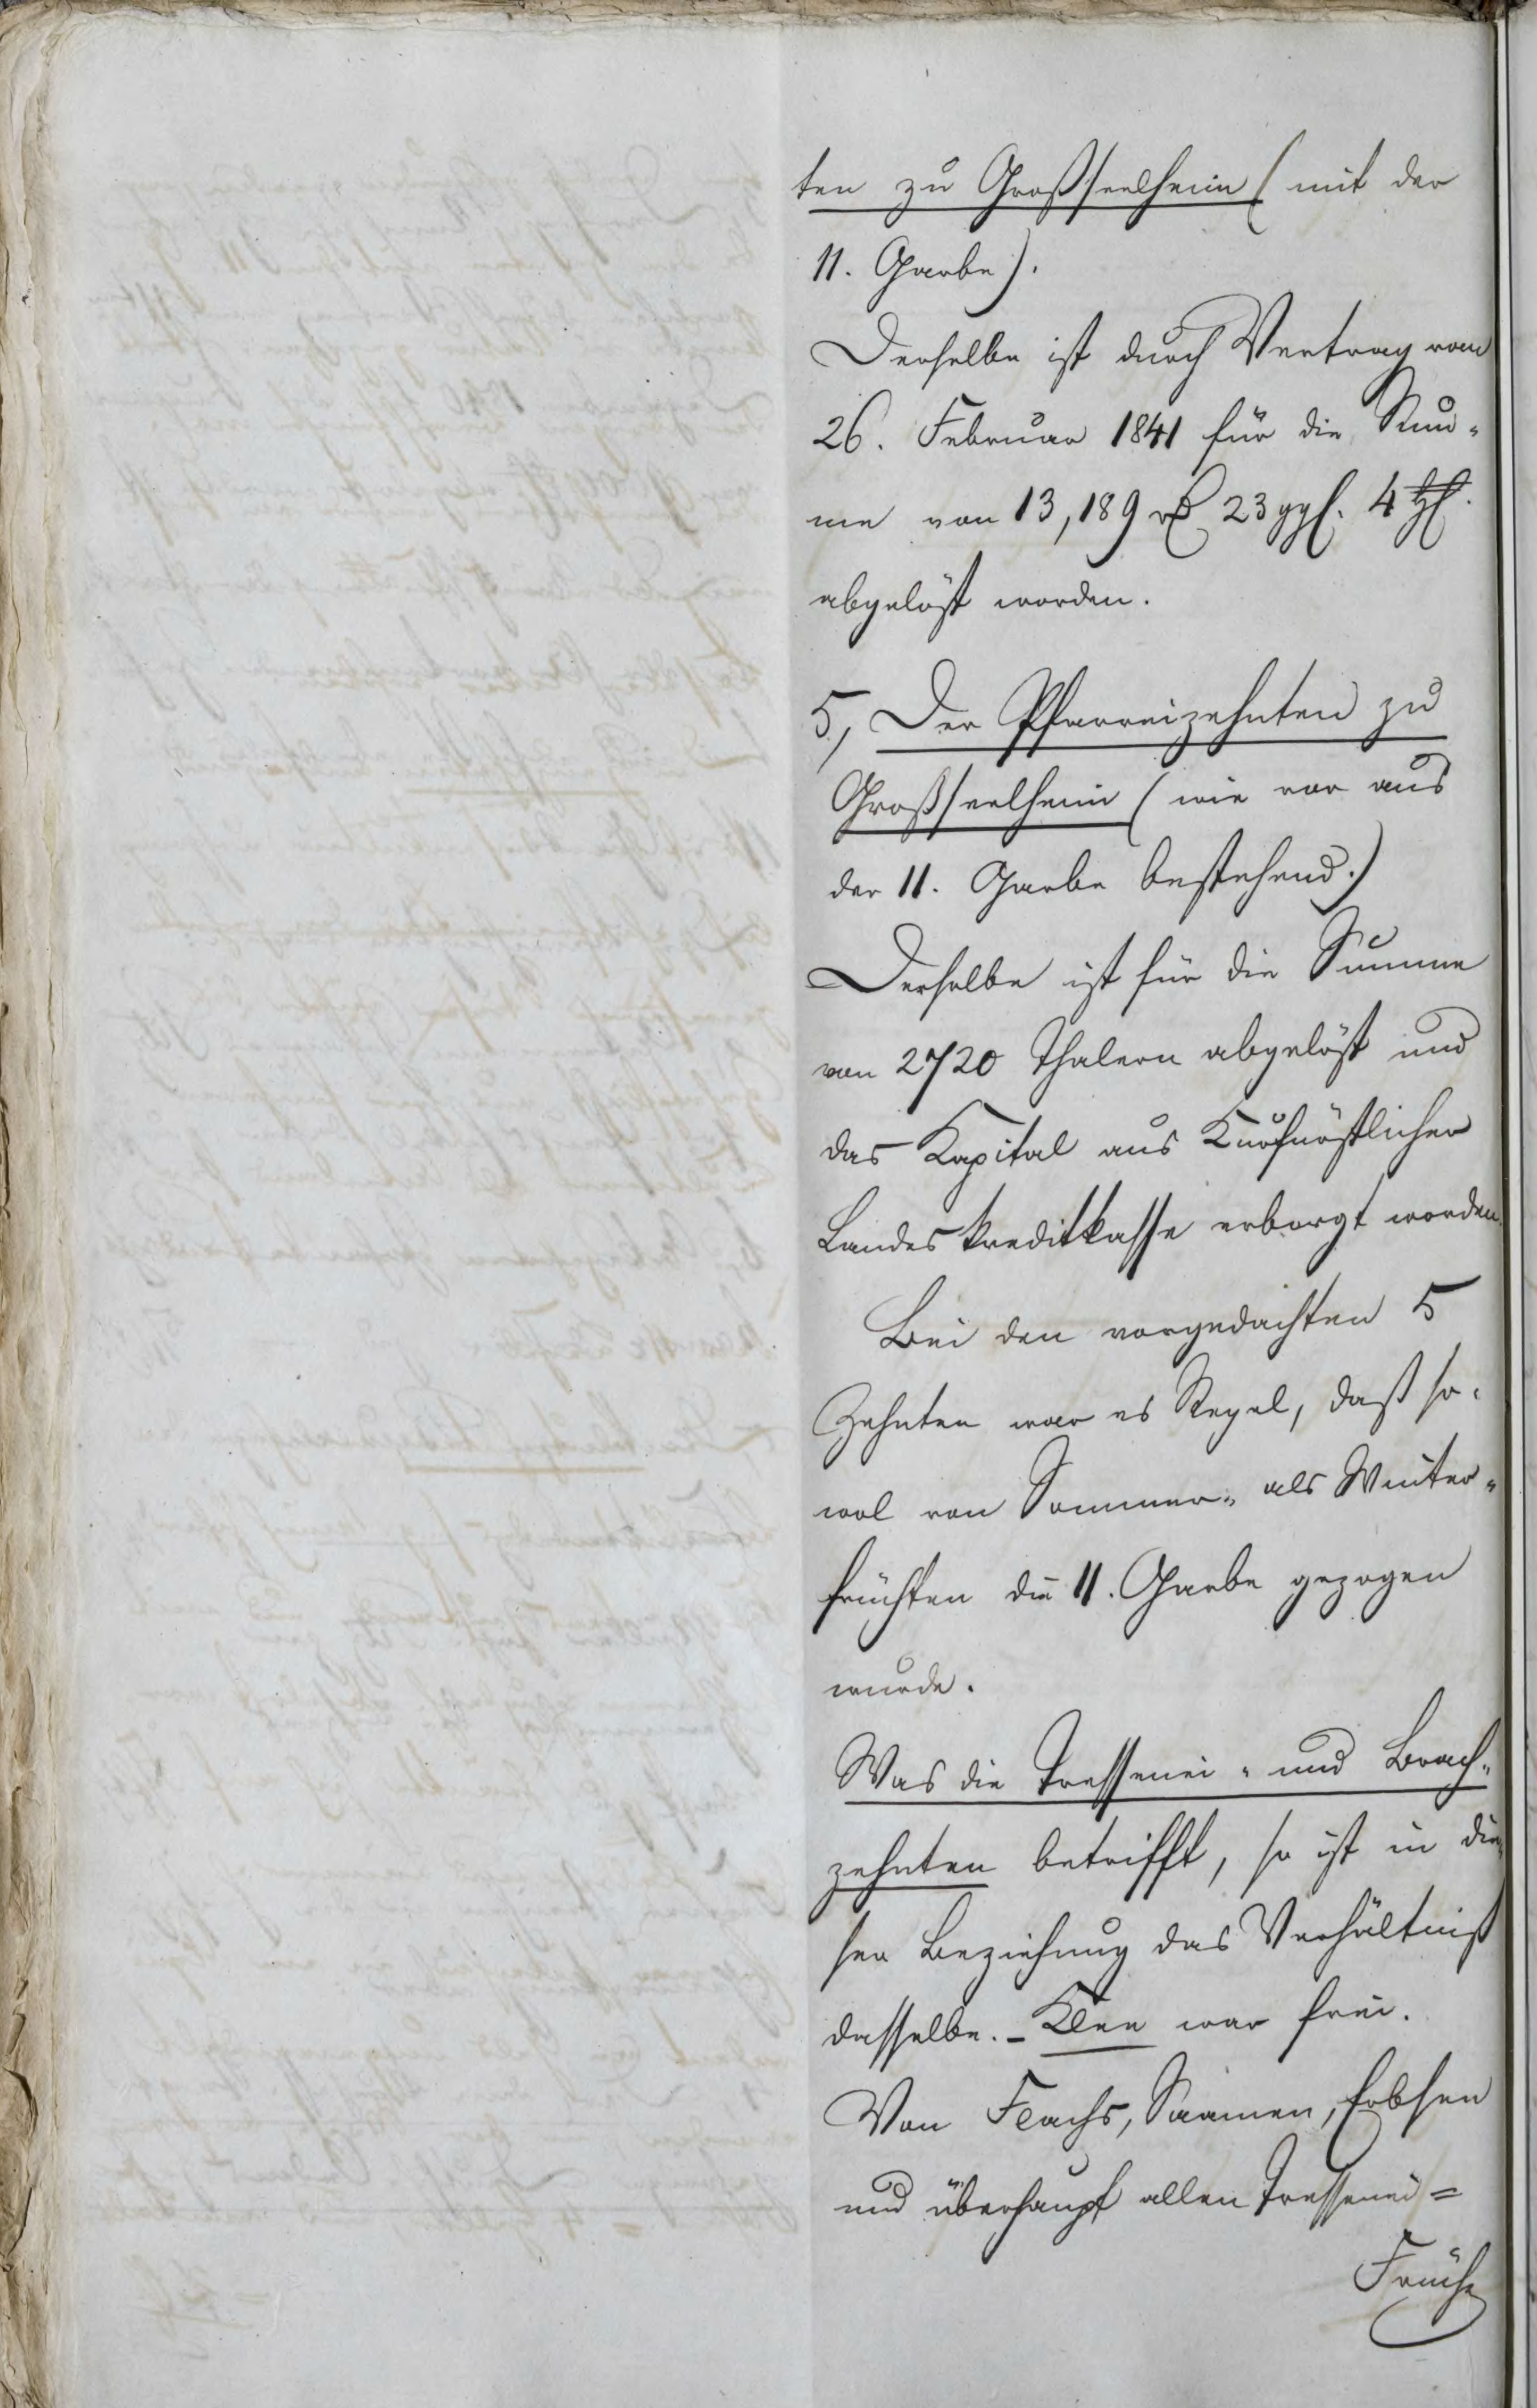 ten zu Großseelheim (mit der
11. Garbe).
Derselbe ist durch Vertrag vom
26. Februar 1841 für die Sum-
me von 13,189 rß 23 ggl. 4 hl.
abgelöst worden.
5, Der Pfarreizehnten zu
Großseelheim (wie vor aus
der 11. Garbe bestehend.)
Derselbe ist für die Summe
von 2720 Thalern abgelöst und
das Kapital aus Kurfürstlicher
Landeskreditkasse erborgt worden.
Bei den vorgedachten 5
Zehnten war es Regel, daß so-
wol von Sommer- als Winter-
früchten die 11. Garbe gezogen
wurde.
Was die Tressenei- und Brach-
zehnten betrifft, so ist in die-
ser Beziehung das Verhältniß
dasselbe. - Klee war frei.
Von Flachs, Saamen, Erbsen
und überhaupt allen Tressenei=
Früch